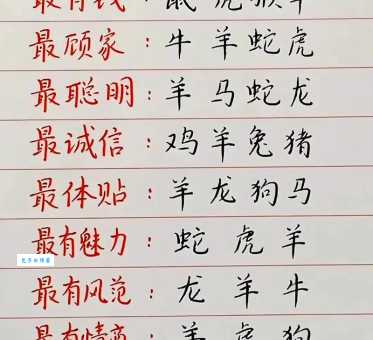 最顾家：牛 羊 蛇 虎
最聪明：羊 马 蛇 龙
最诚信：鸡 羊 兔 猪
最体贴：羊 龙 狗 马
最有魅力：蛇 虎 羊
最有风范：龙 羊 牛